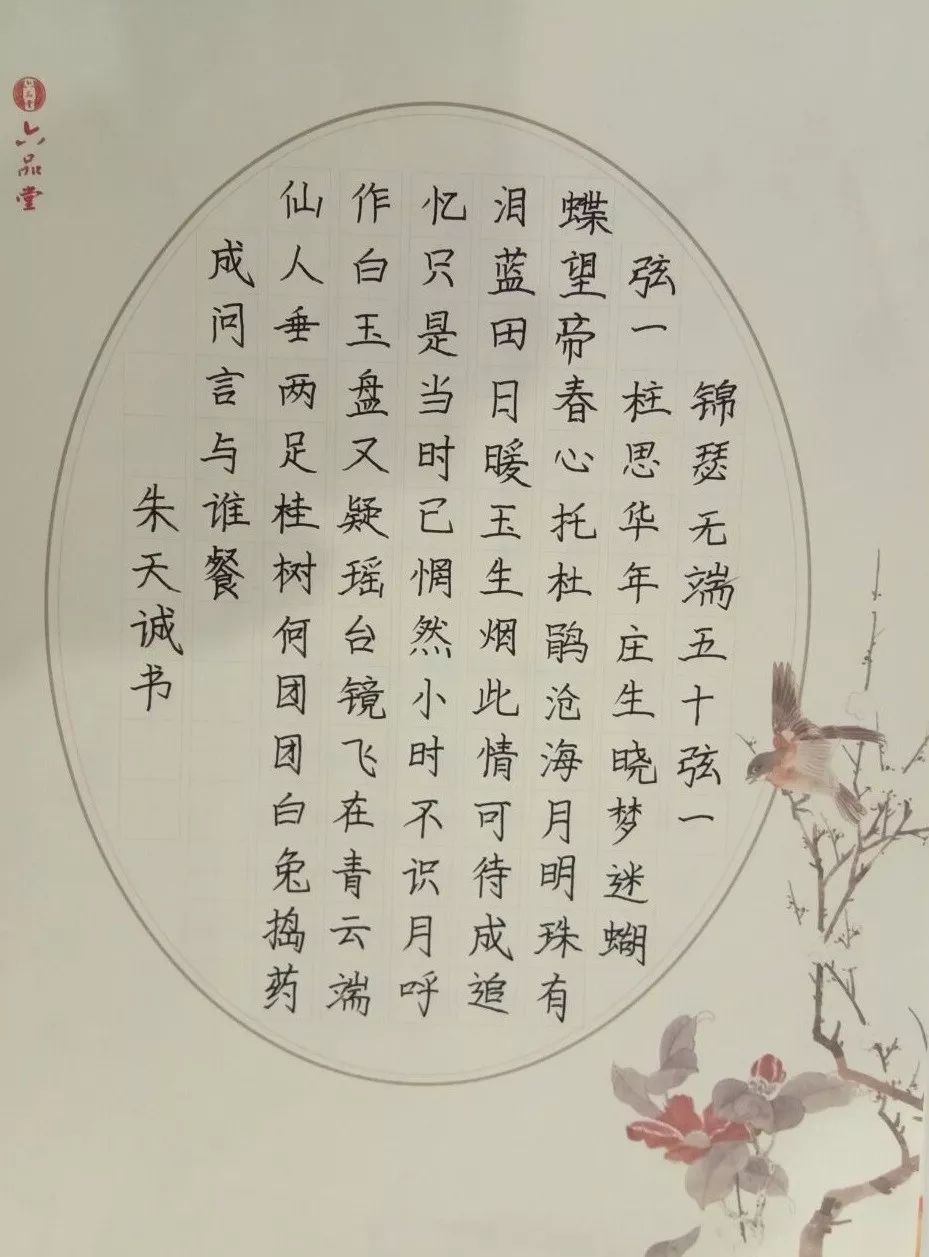 锦瑟无端五十弦一
弦一柱思华年庄生晓梦迷蝴
蝶望帝春心托杜鹃沧海月明珠有
泪蓝田日暖玉生烟此情可待成追
忆只是当时已惘然小时不识月呼
作白玉盘又疑瑶台镜飞在青云端
仙人垂两足桂树何团团白兔捣药
成问言与谁餐
朱天诚书
六品堂